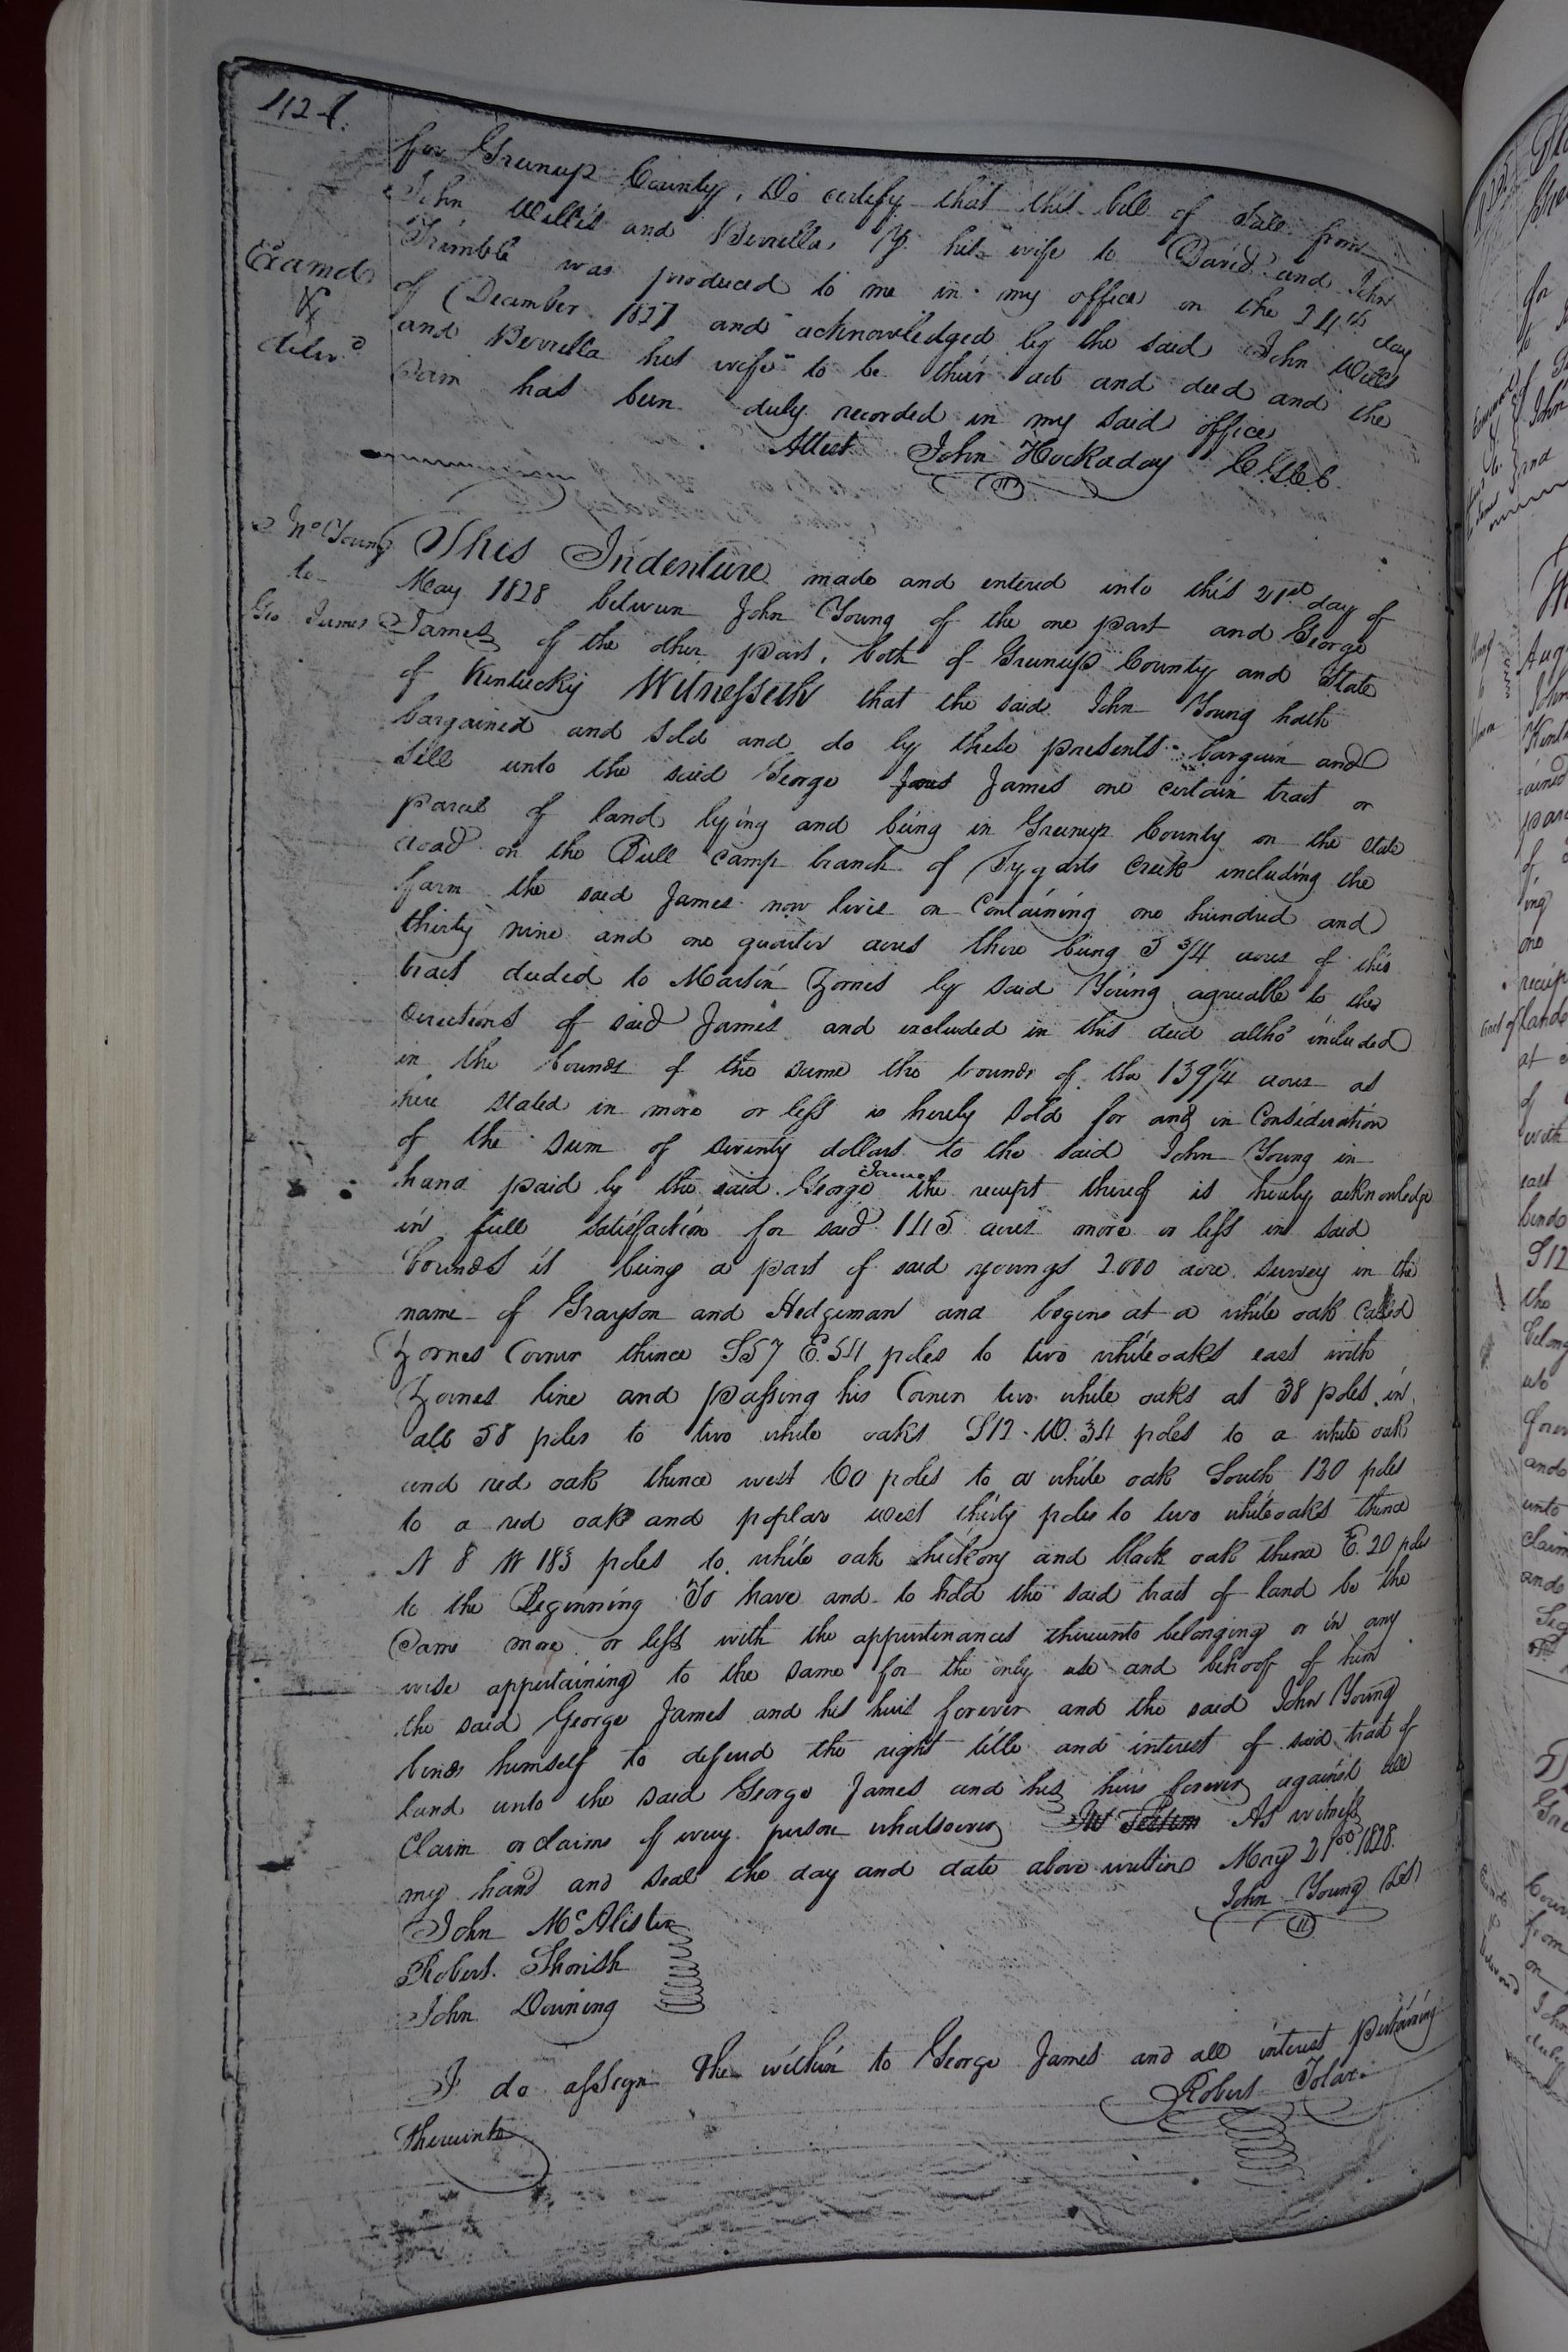 for Greenup County, Do certify that this bill of Sale from
John Wills and his wife to David and John
Trimble was produced to me in my office on the 24th day
Examd & delivd
of December 1827 and acknowledged by the said John Wills
and his wife to be their act and deed and the
Sam has been duly recorded in my said office
Attest John Hockaday C G C C
Jno Young to Geo James
This Indenture made and entered into this 21st day of
May 1828 between John Young of the one part and George
James of the other part, both of Greenup County and State
of Kentucky Witnesseth that the said John Young hath
bargained and sold and do by these presents bargain and
Sell unto the said George James one certain tract or
parcel of land lying and being in Greenup County on the State
road on the Bull camp branch of Tygarts Creek including the
farm the said James now lives on Containing one hundred and
thirty nine and one quarter acres there being 5 3/4 acres of this
tract deeded to Martin Zornes by said Young agreeable to the
directions of said James and excluded in this deed altho' included
in the bounds of the same the bounds of the 139 1/4 acres as
here stated in more or less is hereby sold for and in Consideration
of the sum of seventy dollars to the said John Young in
hand paid by the said George James the receipt thereof is hereby acknowledge
in full satisfaction for said 145 acres more or less in said
bounds it being a part of said youngs 2.000 acre survey in the
name of Grayson and Hedgeman and begins at a white oak Called
Zornes Corner thence S57 E. 54 poles to two white oaks east with
Zornes line and passing his Corner two white oaks at 38 poles in
all 58 poles to two white oaks S12 W. 34 poles to a white oak
and red oak thence west 60 poles to a white oak South 120 poles
to a red oak and poplar west thirty poles to two white oaks thence
N 8 W 183 poles to white oak hickory and black oak thence E. 20 poles
to the Beginning To have and to hold the said tract of land be the
Same more or less with the appurtenances thereunto belonging or in any
wise appertaining to the same for the only use and behoof of him
the said George James and his heirs forever and the said John Young
binds himself to defend the right title and interest of said tract of
land unto the said George James and his heirs forever against all
Claim or claims of every person whatsoever As witness
my hand and seal the day and date above written May 21st 1828.
John Young (LS)
John McAlister
Robert
John Downing
I do assign the within to George James and all interest pertaining
Robert Tolar
thereunto